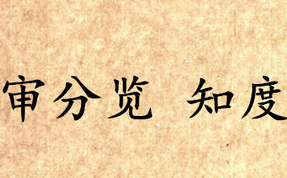 审分览 知度